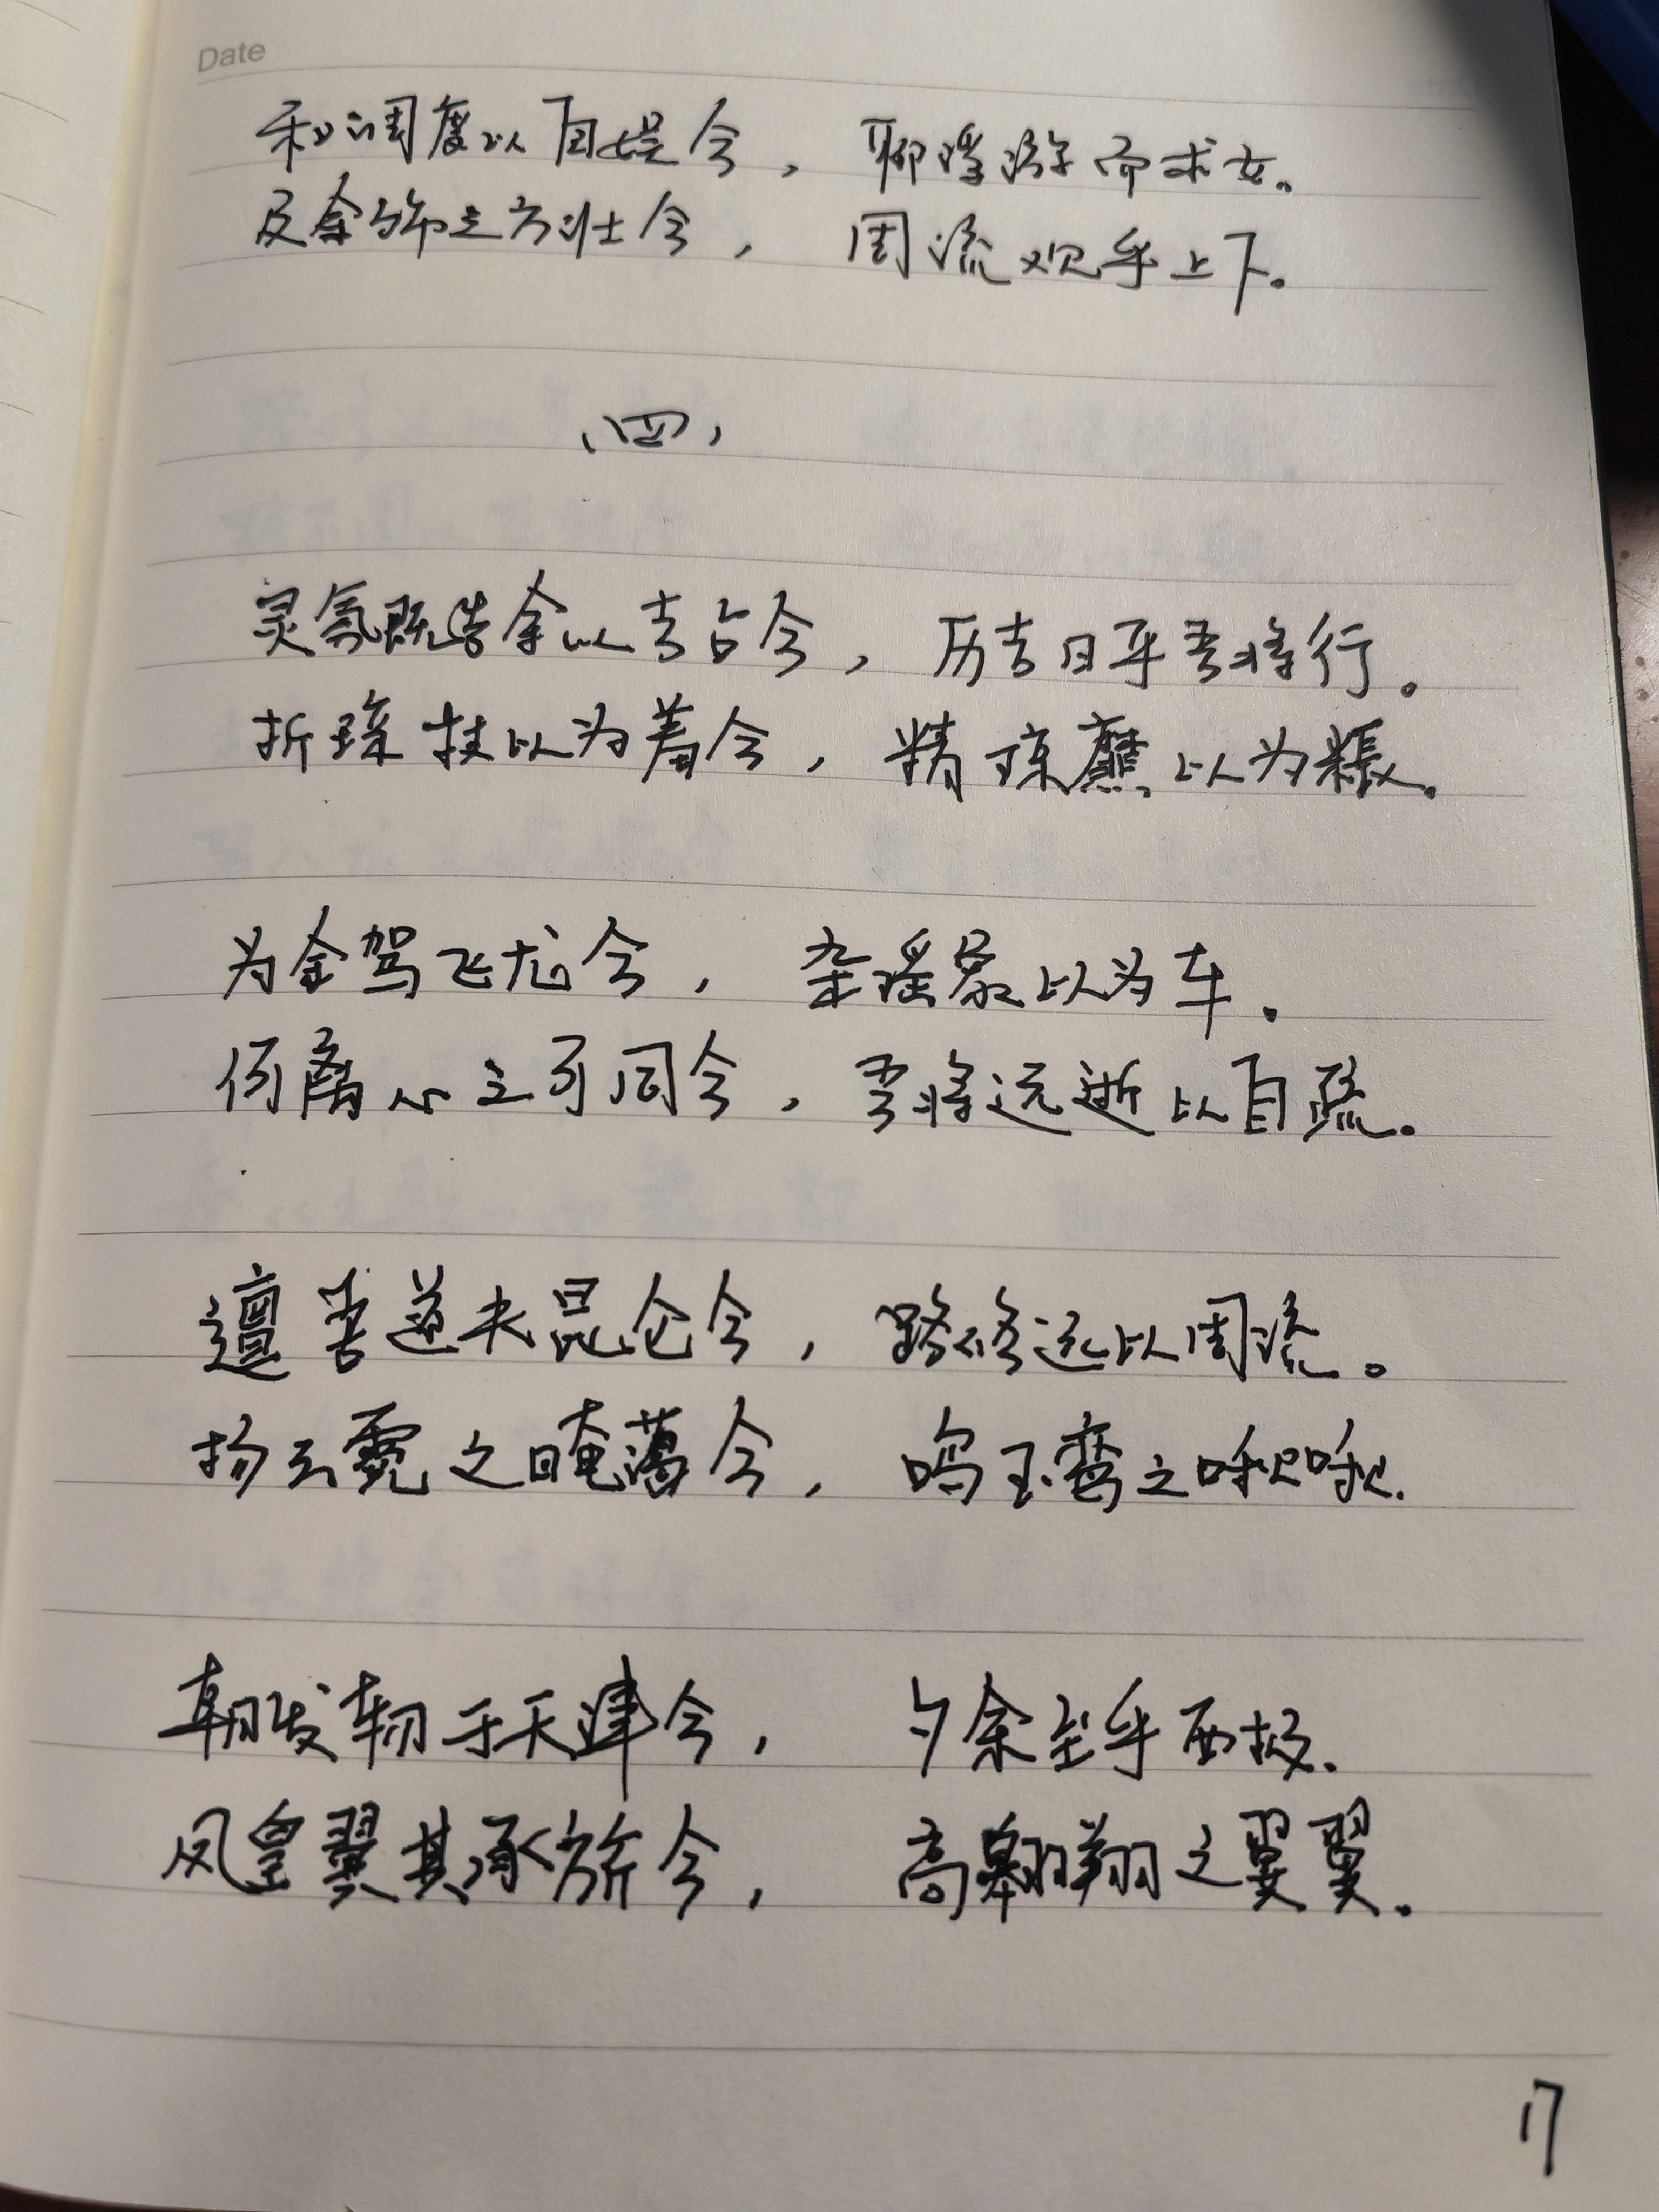 Date
和调度以自娱兮，聊浮游而求女。
及余饰之方壮兮，周流观乎上下。
（四）
灵氛既告余以吉占兮，历吉日乎吾将行。
折琼枝以为羞兮，精琼爢以为粻。
为余驾飞龙兮，杂瑶象以为车。
何离心之可同兮，吾将远逝以自疏。
邅吾道夫昆仑兮，路修远以周流。
扬云霓之晻蔼兮，鸣玉鸾之啾啾.
朝发轫于天津兮，夕余至乎西极.
凤皇翼其承旂兮，高翱翔之翼翼.
17